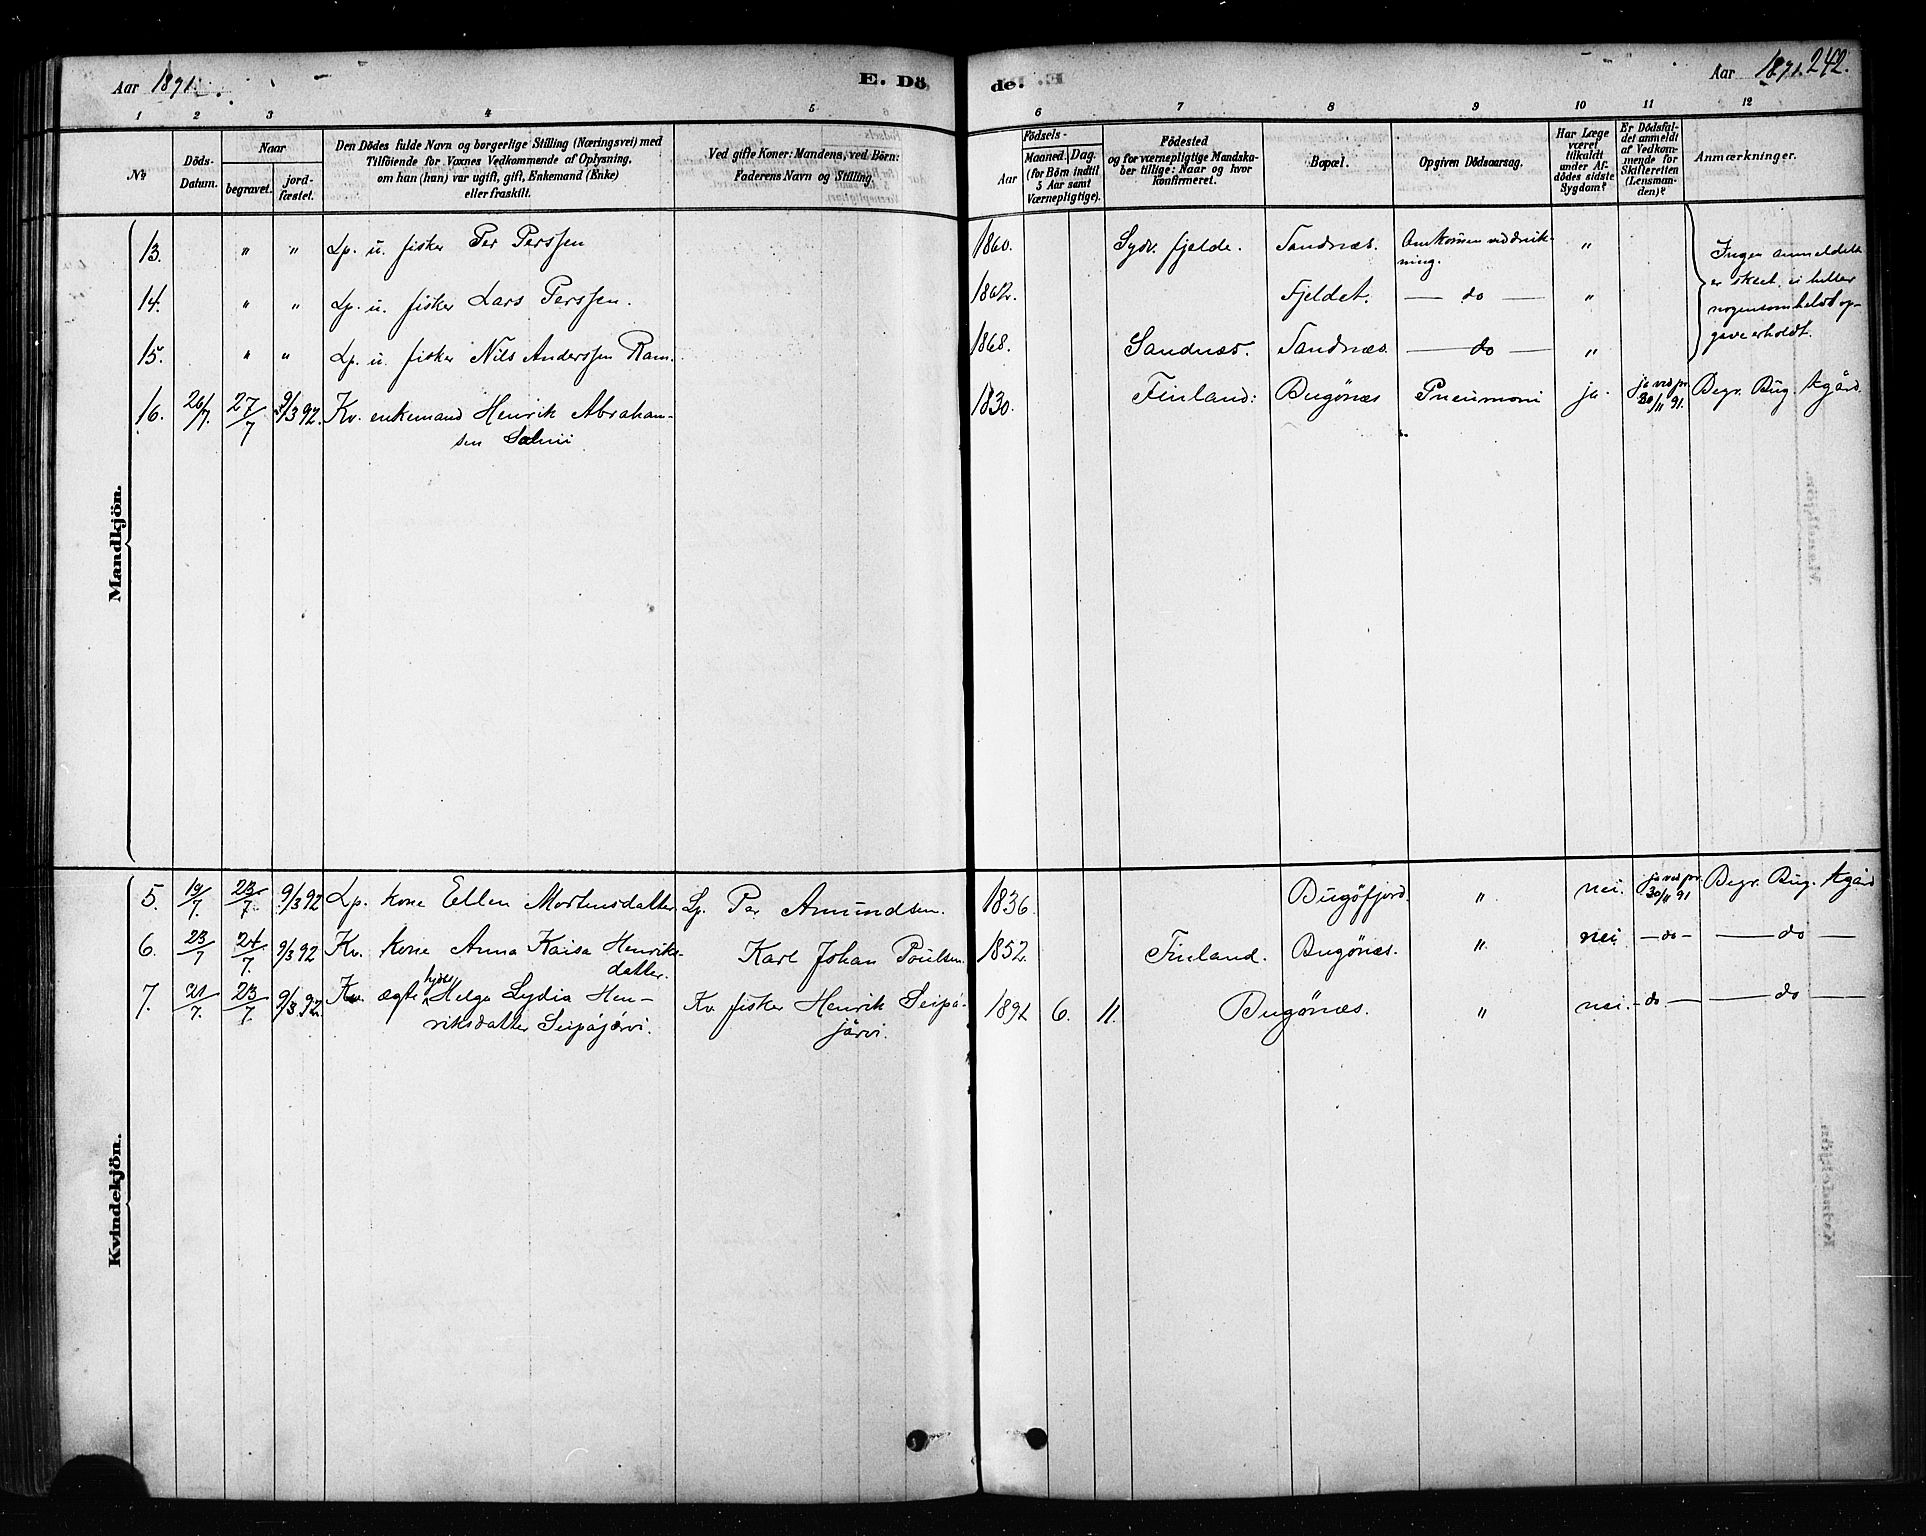 Aar 1891. E. Dö de. Aar 1891. 242.
1 2 3 4 5 6 7 8 9 10 11 12
№
Döds-Datum.
Naar
begravet.
jord-fæstet.
Den Dödes fulde Navn og borgerlige Stilling (Næringsvei) med
Tilföiende for Voxnes Vedkommende af Oplysning,
om han (hun) var ugift, gift, Enkemand (Enke)
eller fraskilt.
Ved gifte Koner: Mandens, ved Börn:
Faderens Navn og Stilling.
Födsels-
Aar
Maaned. Dag.
(for Börn indtil
5 Aar samt
Værnepligtige).
Födested
og for værnepligtige Mandska-
ber tillige: Naar og hvor
konfirmeret.
Bopæl.
Opgiven Dödsaarsag.
Har Læge
været
tilkaldt
under Af-
dödes sidste
Sygdom?
Er Dödsfal-
det anmeldt
af Vedkom-
mende for
Skifteretten
(Lensman-
den)?
Anmærkninger.
Mandkjön.
13. " " Lp. u. fisker Per Perssen 1860. Sydv. fjelde. Sandnæs. Omkommen ved druk-
ning. "
14. " " Lp. u. fisker Lars Perssen. 1862. Fjeldet. — do — "
15. " " Lp. u. fisker Nils Anderssen Ram. 1868. Sandnæs. Sandnæs. — do — "
Ingen anmeldelse
er skeet, ei heller
nogensomhelst op-
gave erholdt.
16. 26/7. 27/7 9/3 92. Kv. enkemand Henrik Abraham-
sen Salmi 1830. Finland: Bugönæs Pneumoni ja. ja ved pr.
30/11 91. Begr. Bug. Kgård
Kvindekjön.
5. 19/7. 23/7 9/3 92 Lp. kone Ellen Mortensdatter Lp. Per Amundsen. 1836. Bugöfjord. " nei. ja ved pr.
30/11 91 Begr. Bug. Kgård
6. 23/7 24/7. 9/3 92 Kv. kone Anna Kaisa Henriks-
datter. Karl Johan Poulsen. 1852. Finland. Bugönæs. " nei — do — — do —
7. 21/7. 23/7 9/3 92. Kv. ægte Helga Lydia Hen-
riksdatter Seipäjärvi. Kv. fisker Henrik Seipä-
järvi. 1891 6. 11. Bugönæs. " nei. — do — — do —